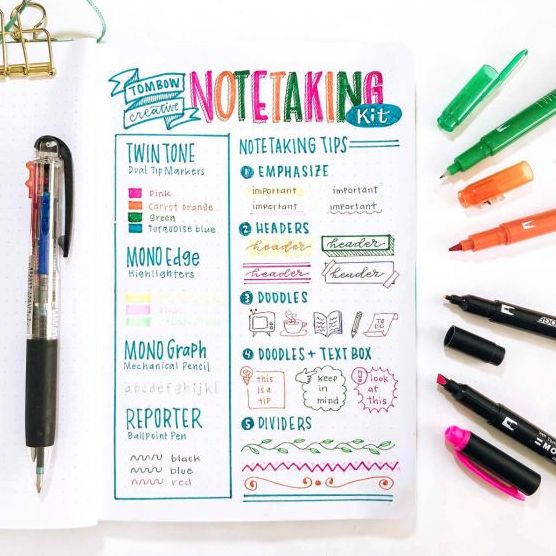 TOMBOW
creative
NOTETAKING
Kit
TWINTONE
Dual Tip Markers
Pink
Carrot orange
Green
Turquoise blue
MONO Edge
Highlighters
MONO Graph
Mechanical Pencil
abcdefghijkl
REPORTER
BallPoint Pen
black
blue
red
NOTETAKING TIPS
1 EMPHASIZE
important important
important important
2 HEADERS
header header
header header
3 DOODLES
TO DO
4 DOODLES + TEXT BOX
this
is a
tip
keep
in
mind
look
at
this
5 DIVIDERS